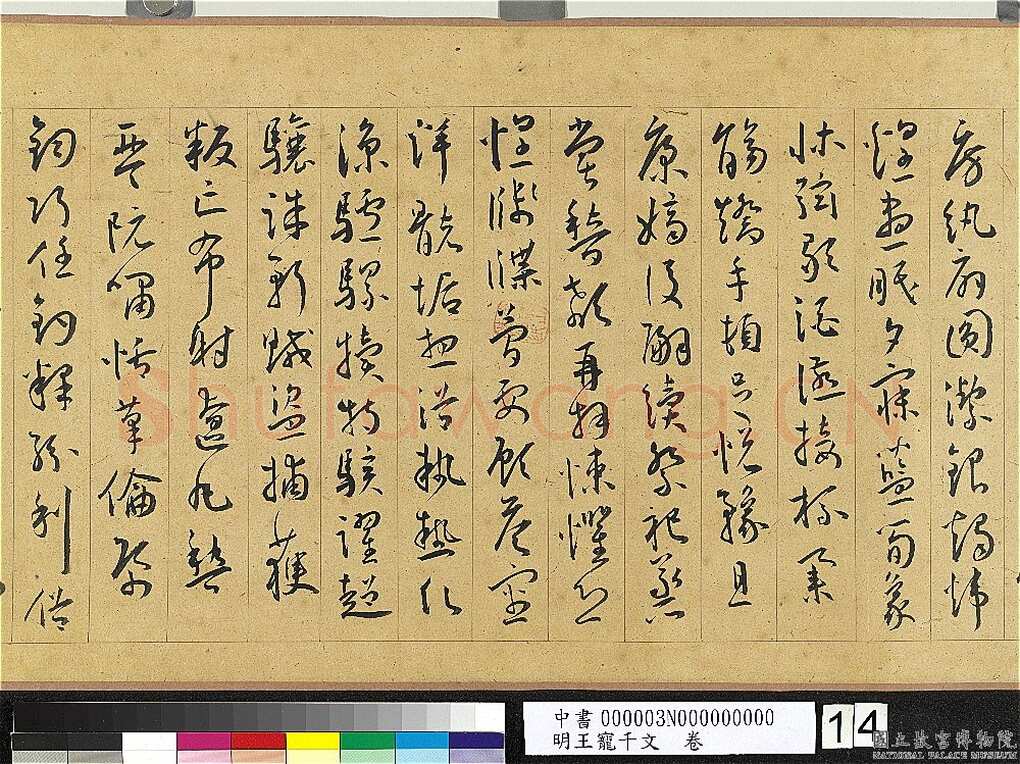 房紈扇圓潔銀燭煒
煌晝眠夕寐藍筍象
牀絃歌酒讌接杯舉
觴矯手頓足悅豫且
康嫡後嗣續祭祀蒸
嘗稽顙再拜悚懼恐
惶牋牒簡要顧答審
詳骸垢想浴執熱願
涼驢騾犢特駭躍超
驤誅斬賊盜捕獲
叛亡布射遼丸嵇
琴阮嘯恬筆倫紙
鈞巧任釣釋紛利俗
Shufawang.CN
中書000003N000000000
明王寵千文 卷
14
國立故宮博物院
NATIONAL PALACE MUSEUM